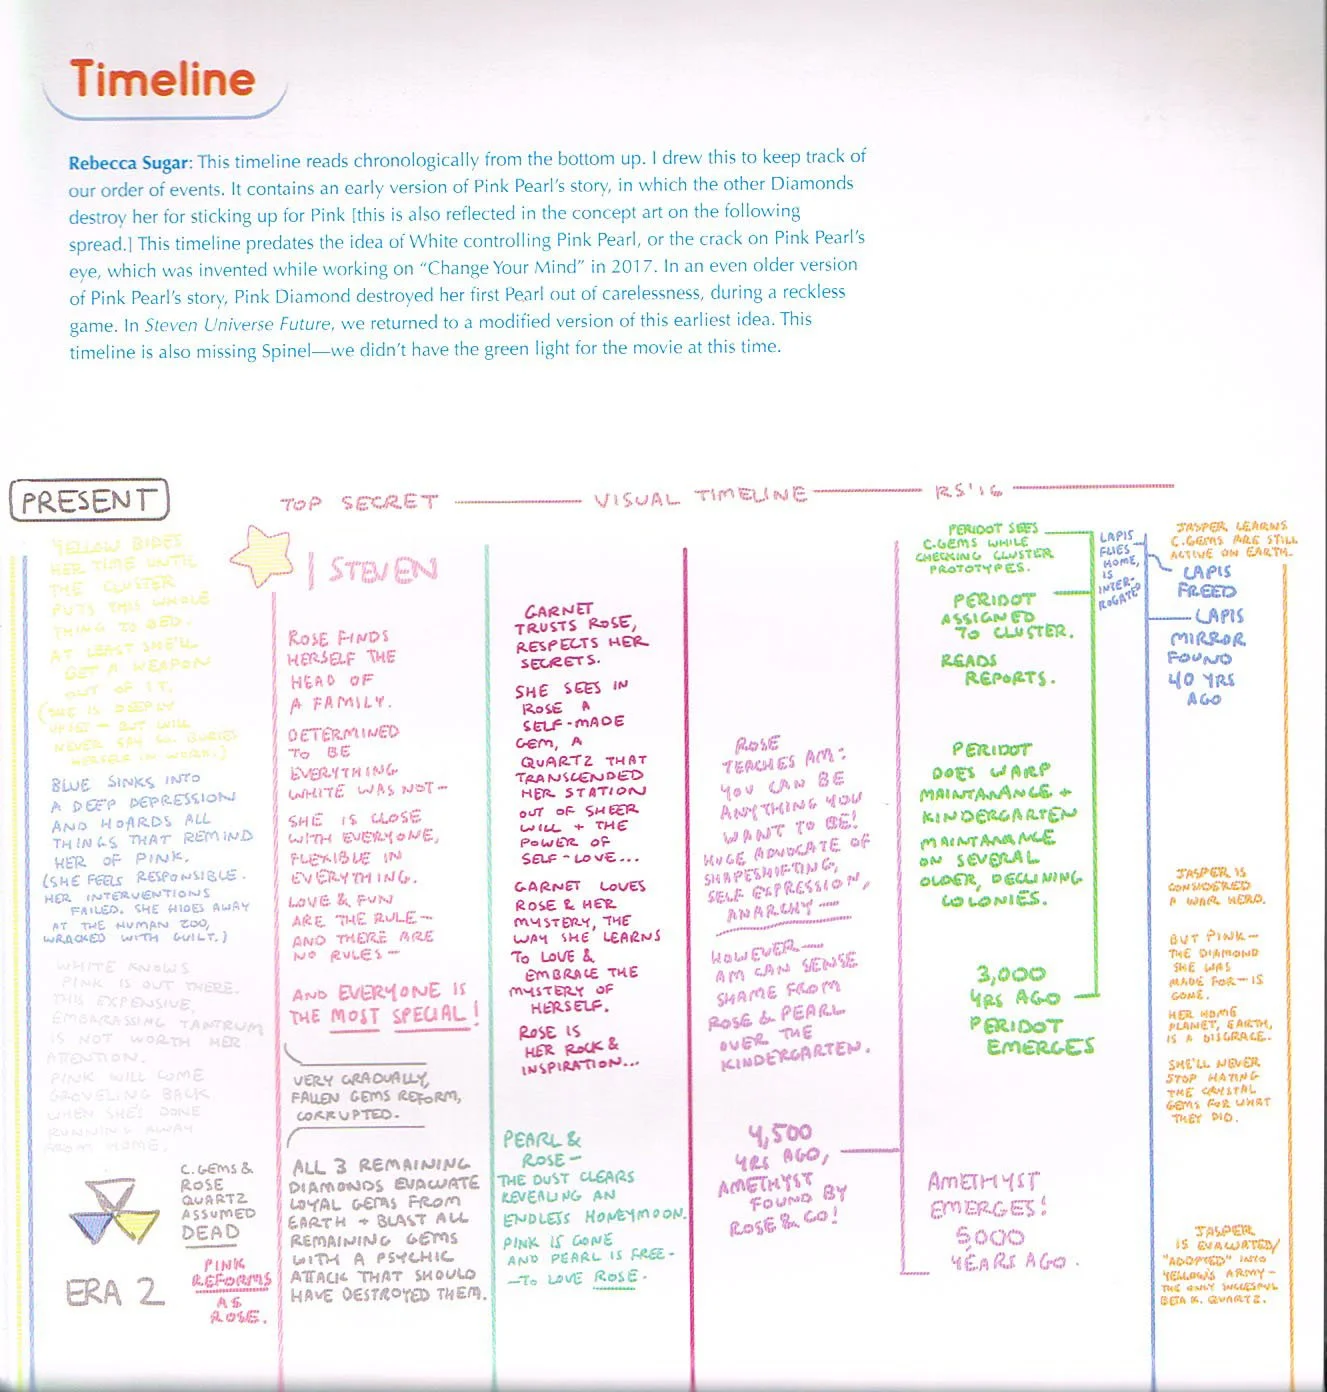 Timeline
Rebecca Sugar: This timeline reads chronologically from the bottom up. I drew this to keep track of
our order of events. It contains an early version of Pink Pearl's story, in which the other Diamonds
destroy her for sticking up for Pink [this is also reflected in the concept art on the following
spread.] This timeline predates the idea of White controlling Pink Pearl, or the crack on Pink Pearl's
eye, which was invented while working on "Change Your Mind" in 2017. In an even older version
of Pink Pearl's story, Pink Diamond destroyed her first Pearl out of carelessness, during a reckless
game. In Steven Universe Future, we returned to a modified version of this earliest idea. This
timeline is also missing Spinel—we didn't have the green light for the movie at this time.
PRESENT
TOP SECRET — VISUAL TIMELINE — RS'16
YELLOW BIDES
HER TIME UNTIL
THE CLUSTER
PUTS THIS WHOLE
THING TO BED.
AT LEAST SHE'LL
GET A WEAPON
OUT OF IT.
(SHE IS DEEPLY
UPSET — BUT WILL
NEVER SAY SO. BURIES
HERSELF IN WORK.)
BLUE SINKS INTO
A DEEP DEPRESSION
AND HOARDS ALL
THINGS THAT REMIND
HER OF PINK.
(SHE FEELS RESPONSIBLE.
HER INTERVENTIONS
FAILED. SHE HIDES AWAY
AT THE HUMAN ZOO,
WRACKED WITH GUILT.)
WHITE KNOWS
PINK IS OUT THERE.
THIS EXPENSIVE,
EMBARASSING TANTRUM
IS NOT WORTH HER
ATTENTION.
PINK WILL COME
GROVELING BACK
WHEN SHE'S DONE
RUNNING AWAY
FROM HOME.
C.GEMS &
ROSE
QUARTZ
ASSUMED
DEAD
ERA 2
PINK
REFORMS
AS
ROSE.
STEVEN
ROSE FINDS
HERSELF THE
HEAD OF
A FAMILY.
DETERMINED
TO BE
EVERYTHING
WHITE WAS NOT—
SHE IS CLOSE
WITH EVERYONE,
FLEXIBLE IN
EVERYTHING.
LOVE & FUN
ARE THE RULE—
AND THERE ARE
NO RULES—
AND EVERYONE IS
THE MOST SPECIAL!
VERY GRADUALLY,
FALLEN GEMS REFORM,
CORRUPTED.
ALL 3 REMAINING
DIAMONDS EVACUATE
LOYAL GEMS FROM
EARTH + BLAST ALL
REMAINING GEMS
WITH A PSYCHIC
ATTACK THAT SHOULD
HAVE DESTROYED THEM.
GARNET
TRUSTS ROSE,
RESPECTS HER
SECRETS.
SHE SEES IN
ROSE A
SELF-MADE
GEM, A
QUARTZ THAT
TRANSCENDED
HER STATION
OUT OF SHEER
WILL + THE
POWER OF
SELF-LOVE...
GARNET LOVES
ROSE & HER
MYSTERY, THE
WAY SHE LEARNS
TO LOVE &
EMBRACE THE
MYSTERY OF
HERSELF.
ROSE IS
HER ROCK &
INSPIRATION...
PEARL &
ROSE—
THE DUST CLEARS
REVEALING AN
ENDLESS HONEYMOON.
PINK IS GONE
AND PEARL IS FREE-
—TO LOVE ROSE.
ROSE
TEACHES AM:
YOU CAN BE
ANYTHING YOU
WANT TO BE!
HUGE ADVOCATE OF
SHAPESHIFTING,
SELF EXPRESSION,
ANARCHY—
HOWEVER—
AM CAN SENSE
SHAME FROM
ROSE & PEARL
OVER THE
KINDERGARTEN.
4,500
YRS AGO,
AMETHYST
FOUND BY
ROSE & CO!
PERIDOT SEES
C.GEMS WHILE
CHECKING CLUSTER
PROTOTYPES.
PERIDOT
ASSIGNED
TO CLUSTER.
READS
REPORTS.
PERIDOT
DOES WARP
MAINTANANCE +
KINDERGARTEN
MAINTANANCE
ON SEVERAL
OLDER, DECLINING
COLONIES.
3,000
YRS AGO
PERIDOT
EMERGES
AMETHYST
EMERGES!
5000
YEARS AGO.
LAPIS
FLIES
HOME,
IS
INTER-
ROGATED
JASPER LEARNS
C.GEMS ARE STILL
ACTIVE ON EARTH.
LAPIS
FREED
LAPIS
MIRROR
FOUND
40 YRS
AGO
JASPER IS
CONSIDERED
A WAR HERO.
BUT PINK—
THE DIAMOND
SHE WAS
MADE FOR—IS
GONE.
HER HOME
PLANET, EARTH,
IS A DISGRACE.
SHE'LL NEVER
STOP HATING
THE CRYSTAL
GEMS FOR WHAT
THEY DID.
JASPER
IS EVALUATED/
"ADOPTED" INTO
YELLOW'S ARMY—
THE ONLY SUCCESSFUL
BETA K. QUARTZ.